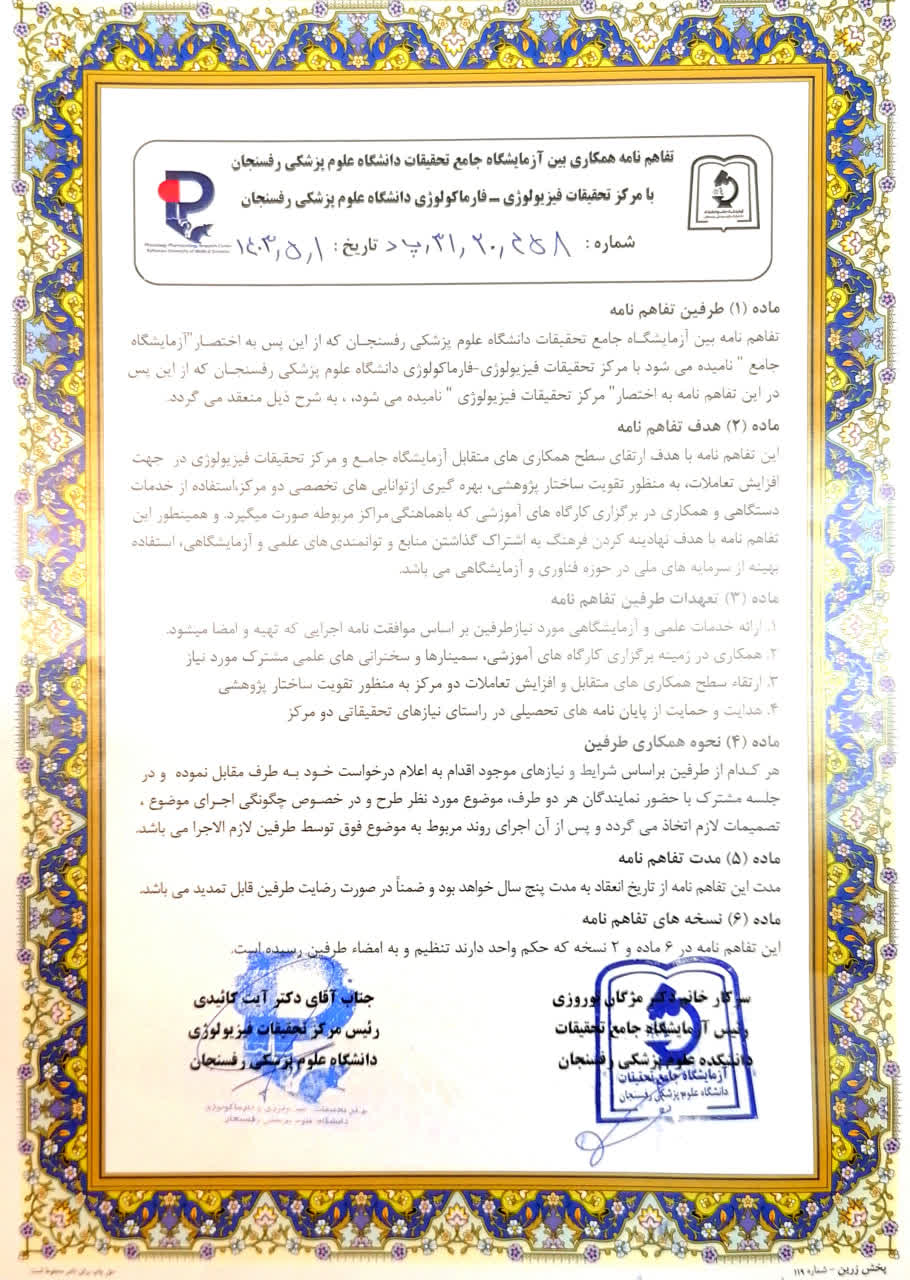 تفاهم نامه همکاری بین آزمایشگاه جامع تحقیقات دانشگاه علوم پزشکی رفسنجان
با مرکز تحقیقات فیزیولوژی – فارماکولوژی دانشگاه علوم پزشکی رفسنجان
Physiology-Pharmacology Research Center
Rafsanjan University of Medical Sciences
شماره : ۳۱٫۲۰٫۴۵۸٫پ د تاریخ : ۱۴۰۳٫۵٫۱
ماده (۱) طرفین تفاهم نامه
تفاهم نامه بین آزمایشگاه جامع تحقیقات دانشگاه علوم پزشکی رفسنجان که از این پس به اختصار"آزمایشگاه
جامع " نامیده می شود با مرکز تحقیقات فیزیولوژی-فارماکولوژی دانشگاه علوم پزشکی رفسنجان که از این پس
در این تفاهم نامه به اختصار" مرکز تحقیقات فیزیولوژی " نامیده می شود، ، به شرح ذیل منعقد می گردد.
ماده (۲) هدف تفاهم نامه
این تفاهم نامه با هدف ارتقای سطح همکاری های متقابل آزمایشگاه جامع و مرکز تحقیقات فیزیولوژی در جهت
افزایش تعاملات، به منظور تقویت ساختار پژوهشی، بهره گیری ازتوانایی های تخصصی دو مرکز،استفاده از خدمات
دستگاهی و همکاری در برگزاری کارگاه های آموزشی که باهماهنگی مراکز مربوطه صورت میگیرد. و همینطور این
تفاهم نامه با هدف نهادینه کردن فرهنگ به اشتراک گذاشتن منابع و توانمندی های علمی و آزمایشگاهی، استفاده
بهینه از سرمایه های ملی در حوزه فناوری و آزمایشگاهی می باشد.
ماده (۳) تعهدات طرفین تفاهم نامه
۱. ارائه خدمات علمی و آزمایشگاهی مورد نیازطرفین بر اساس موافقت نامه اجرایی که تهیه و امضا میشود.
۲. همکاری در زمینه برگزاری کارگاه های آموزشی، سمینارها و سخنرانی های علمی مشترک مورد نیاز
۳. ارتقاء سطح همکاری های متقابل و افزایش تعاملات دو مرکز به منظور تقویت ساختار پژوهشی
۴. هدایت و حمایت از پایان نامه های تحصیلی در راستای نیازهای تحقیقاتی دو مرکز
ماده (۴) نحوه همکاری طرفین
هر کدام از طرفین براساس شرایط و نیازهای موجود اقدام به اعلام درخواست خود به طرف مقابل نموده و در
جلسه مشترک با حضور نمایندگان هر دو طرف، موضوع مورد نظر طرح و در خصوص چگونگی اجرای موضوع ،
تصمیمات لازم اتخاذ می گردد و پس از آن اجرای روند مربوط به موضوع فوق توسط طرفین لازم الاجرا می باشد.
ماده (۵) مدت تفاهم نامه
مدت این تفاهم نامه از تاریخ انعقاد به مدت پنج سال خواهد بود و ضمناً در صورت رضایت طرفین قابل تمدید می باشد.
ماده (۶) نسخه های تفاهم نامه
این تفاهم نامه در ۶ ماده و ۲ نسخه که حکم واحد دارند تنظیم و به امضاء طرفین رسیده است.
سرکار خانم دکتر مژگان نوروزی
رئیس آزمایشگاه جامع تحقیقات
دانشکده علوم پزشکی رفسنجان
آزمایشگاه جامع تحقیقات
دانشگاه علوم پزشکی رفسنجان
جناب آقای دکتر آیت کائیدی
رئیس مرکز تحقیقات فیزیولوژی
دانشگاه علوم پزشکی رفسنجان
مرکز تحقیقات فیزیولوژی و فارماکولوژی
دانشگاه علوم پزشکی رفسنجان
پخش زرین - شماره ۱۱۹